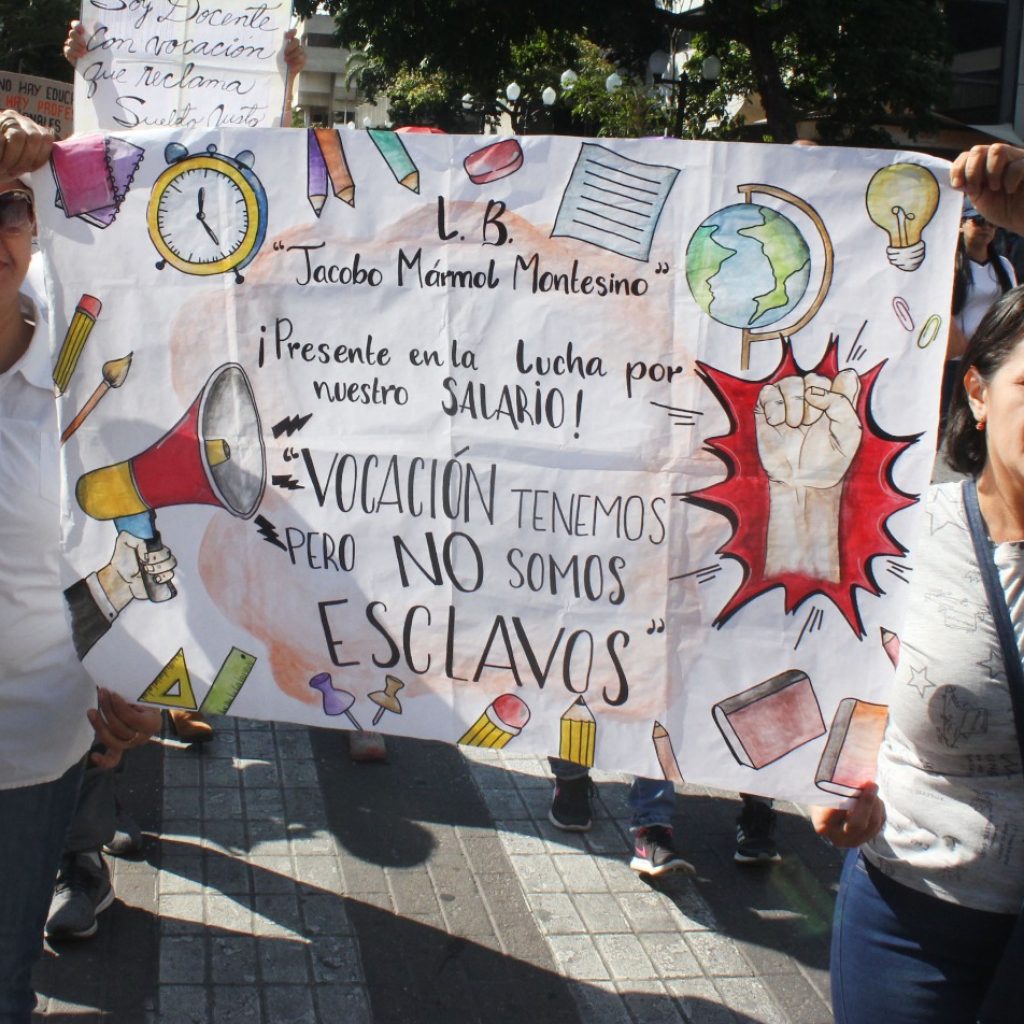 Soy Docente
Con vocación
que reclama
Sueldo Justo
NO HAY EDUC
HAY PROFE
L. B.
"Jacobo Mármol Montesino"
¡Presente en la Lucha por
nuestro SALARIO!
"VOCACIÓN TENEMOS
PERO NO SOMOS
ESCLAVOS"